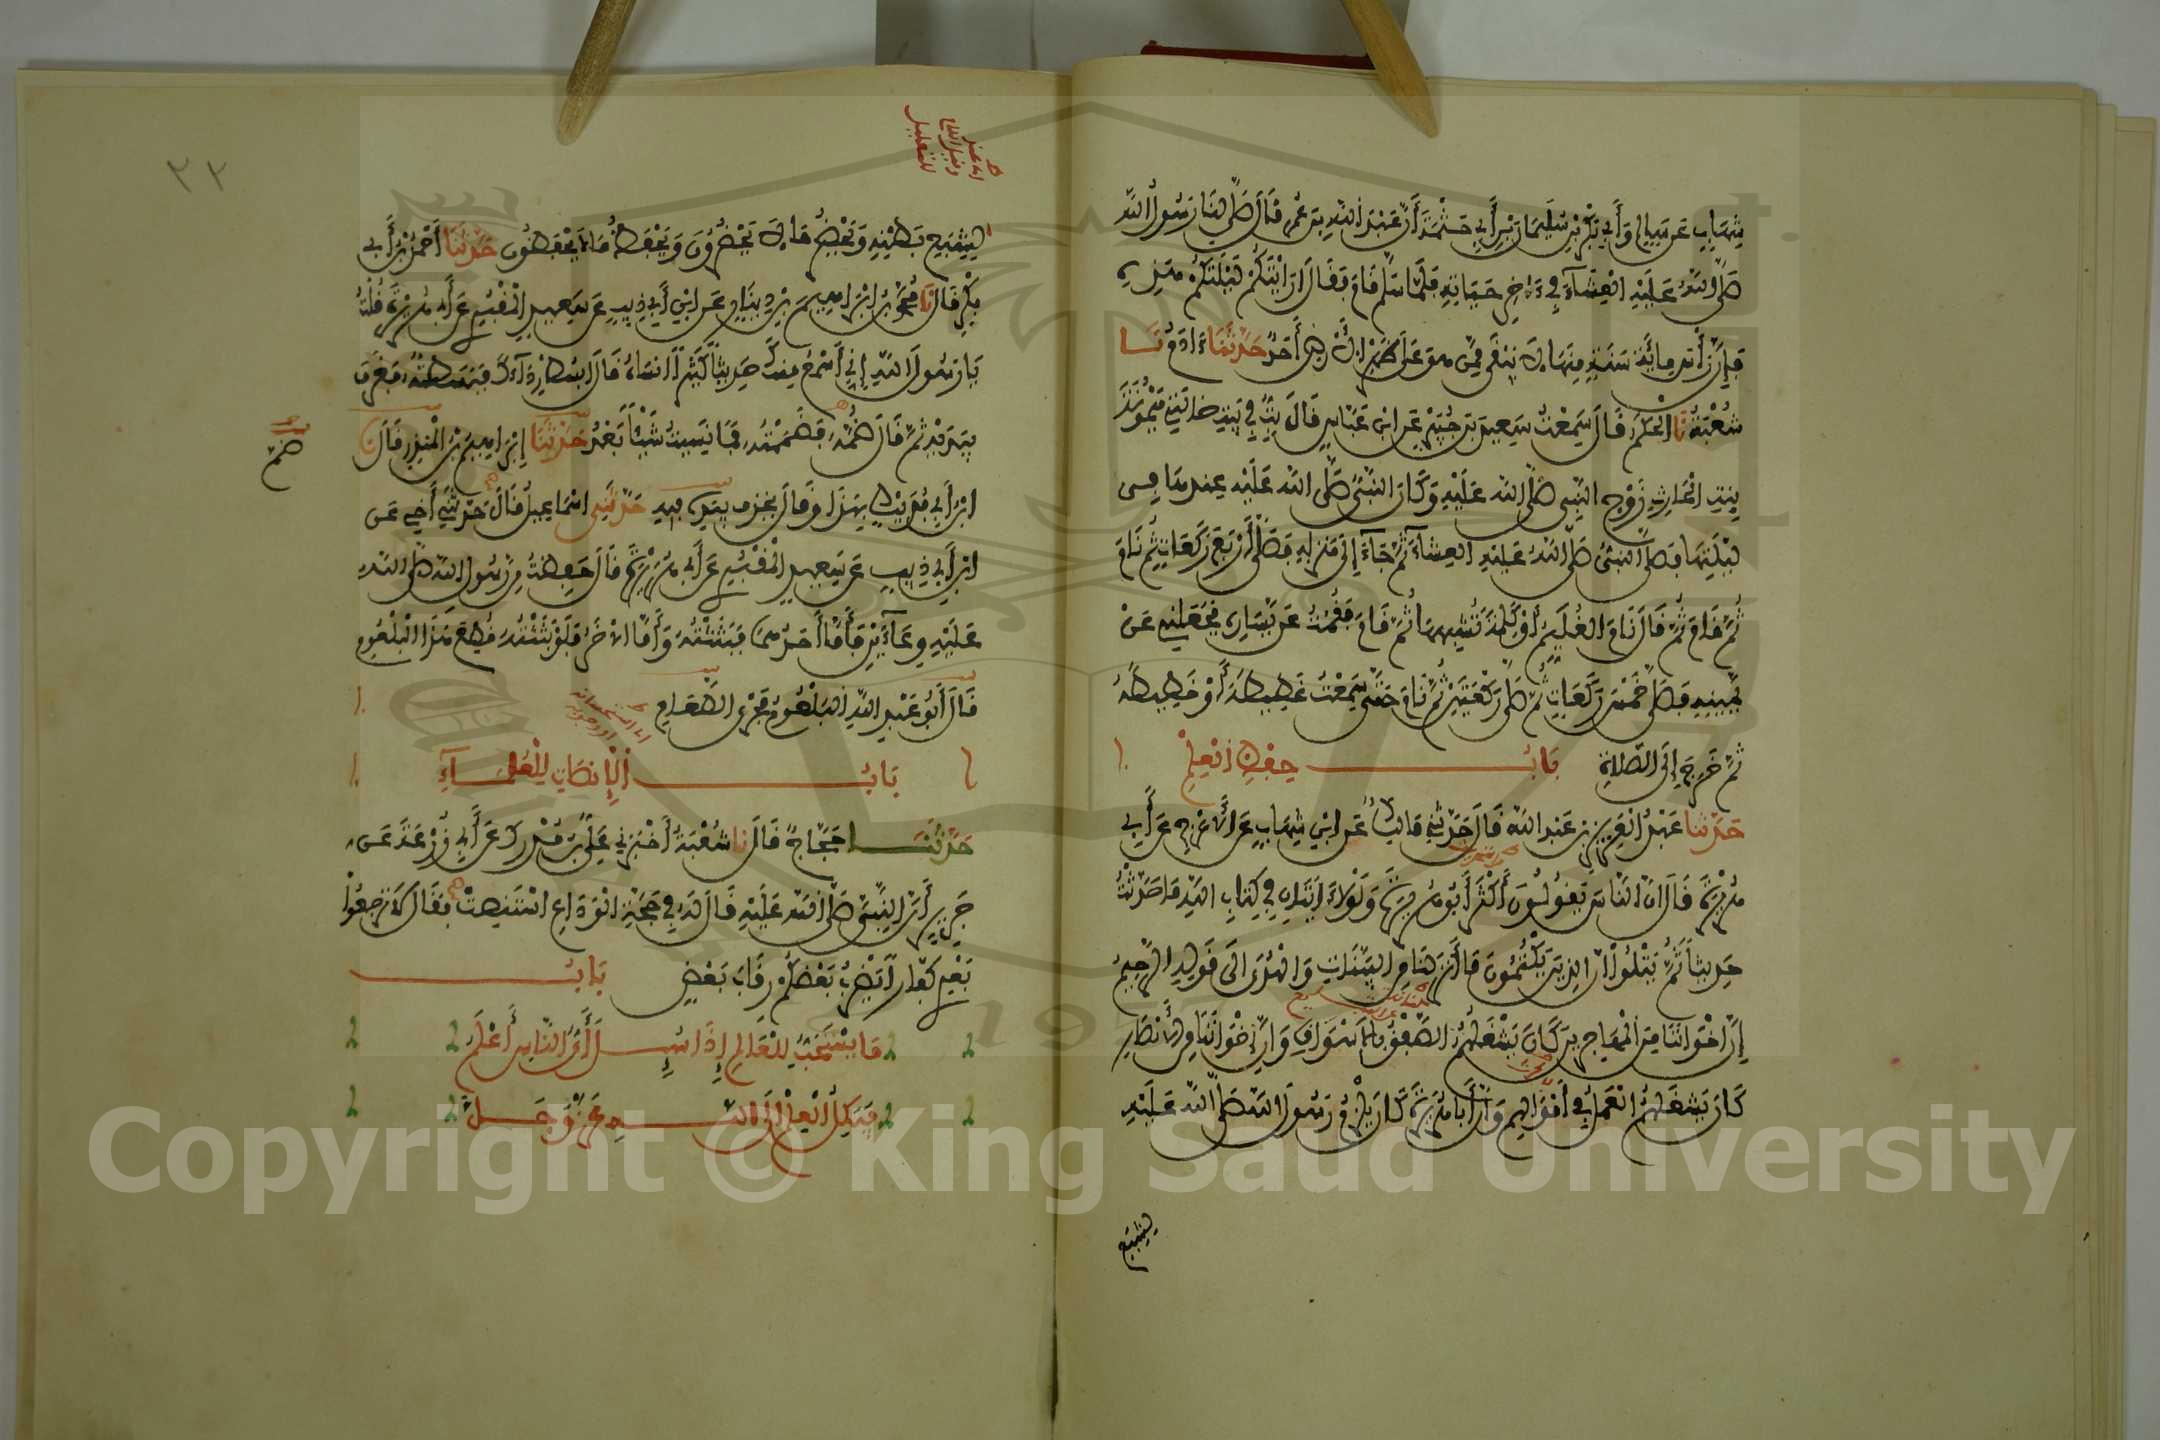 شِهَابٍ عَن سَالِمٍ وَأَبِي بَكْرِ بْنِ سُلَيْمَانَ بْنِ أَبِي حَثْمَةَ أَنَّ عَبْدَ اللَّهِ بنَ عُمَرَ قَالَ صَلَّى لنَا رَسُولُ اللَّه
صَلَّى اللَّهُ عَلَيْهِ الْعِشَآءَ فِي ءَاخِرِ حَيَاتِهِ فَلَمَّا سَلَّمَ قَامَ فَقَالَ أَرَأَيْتَكُمْ لَيْلَتَكُمْ هَذِهِ
فَإِنَّ رَأْسَ مِائَةِ سَنَةٍ مِنْهَا لَا يَبْقَى مِمَّن هُوَ عَلَى ظَهْرِ الْأَرْضِ أَحَدٌ حَدَّثَنَا ءَادَمُ نَا
شُعْبَةُ نَا الْحَكَمُ قَالَ سَمِعْتُ سَعِيدَ بنَ جُبَيْرٍ عَنِ ابْنِ عَبَّاسٍ قَالَ بِتُّ فِي بَيْتِ خَالَتِي مَيْمُونَةَ
بِنْتِ الْحَارِثِ زَوْجِ النَّبِي صَلَّى اللَّه عَلَيْهِ وَكَانَ النَّبِيُّ صَلَّى اللَّه عَلَيْهِ عِنْدَهَا فِي
لَيْلَتِهَا فَصَلَّى النَّبِيُّ صَلَّى اللَّهُ عَلَيْهِ الْعِشَآءَ ثُمَّ جَآءَ إِلَى مَنْزِلِهِ فَصَلَّى أَرْبَعَ رَكَعَاتٍ ثُمَّ نَامَ
ثُمَّ قَامَ ثُمَّ قَالَ نَامَ الْغُلَيِّمُ أَوْ كَلِمَةً تُشْبِهُهَا ثُمَّ قَامَ فَقُمْتُ عَن يَسَارِهِ فَجَعَلَنِي عَنْ
يَمِينِهِ فَصَلَّى خَمْسَ رَكَعَاتٍ ثُمَّ صَلَّى رَكْعَتَيْنِ ثُمَّ نَامَ حَتَّى سَمِعْتُ غَطِيطَهُ أَوْ خَطِيطَهُ
ثُمَّ خَرَجَ إِلَى الصَّلَاةِ بَابُ حِفْظِ الْعِلْمِ
حَدَّثَنَا عَبْدُ الْعَزِيزِ بْنُ عَبْدِ اللَّه قَالَ حَدَّثَنِي مَالِكٌ عَنِ ابْنِ شِهَابٍ عَنِ الْأَعْرَجِ عَنْ أَبِي
هُرَيْرَةَ قَالَ إِنَّ النَّاسَ يَقُولُونَ أَكْثَرَ أَبُو هُرَيْرَةَ وَلَوْلَا ءَايَتَانِ فِي كِتَابِ اللَّهِ مَا حَدَّثْتُ
حَدِيثًا ثُمَّ يَتْلُوا إِنَّ الذِينَ يَكْتُمُونَ مَا أَنزَلْنَا مِنَ الْبَيِّنَاتِ وَالْهُدَى إِلَى قَوْلِهِ الرَّحِيمُ
إِنَّ إِخْوَانَنَا مِنَ الْمُهَاجِرِينَ كَانَ يَشْغَلُهُمُ الصَّفْقُ بِالْأَسْوَاقِ وَإِنَّ إِخْوَانَنَا مِنَ الْأَنْصَارِ
كَانَ يَشْغَلُهُمُ الْعَمَلُ فِي أَمْوَالِهِمْ وَإِنَّ أَبَا هُرَيْرَةَ كَانَ يَلْزَمُ رَسُولَ اللَّه صَلَّى اللَّه عَلَيْهِ
لِيُشْبِعَ
٢٢
لِيُشْبِعَ بَطْنِهِ وَيَحْضُرُ مَا لَا يَحْضُرُونَ وَيَحْفَظُ مَا لَا يَحْفَظُونَ حَدَّثَنَا أَحْمَدُ بْنُ أَبِي
بَكْرٍ قَالَ نَا مُحَمَّدُ بْنُ إِبْرَاهِيمَ بْنِ دِينَارٍ عَنِ ابْنِ أَبِي ذِيبٍ عَن سَعِيدٍ الْمَقْبُرِيِّ عَن أَبِي هُرَيْرَةَ قُلْتُ
يَا رَسُولَ اللَّهِ إِنِّي أَسْمَعُ مِنكَ حَدِيثًا كَثِيرًا أَنسَاهُ قَالَ ابْسُطْ رِدَآءَكَ فَبَسَطْتُهُ فَغَرَفَ
بِيَدَيْهِ ثُمَّ قَالَ ضُمَّهُ فَضَمَمْتُهُ فَمَا نَسِيتُ شَيْئًا بَعْدُ حَدَّثَنَا إِبْرَاهِيمُ بْنُ الْمُنْذِرِ قَالَ نَا
ضمّ
ابْنُ أَبِي فُدَيْكٍ بِهَذَا وَقَالَ يَحْذِفُ بِيَدِهِ فِيهِ حَدَّثَنِي إِسْمَاعِيلُ قَالَ حَدَّثَنِي أَخِي عَنِ
ابْنِ أَبِي ذِيبٍ عَن سَعِيدٍ الْمَقْبُرِيِّ عَن أَبِي هُرَيْرَةَ قَالَ حَفِظْتُ مِن رَّسُولِ اللَّه صَلَّى اللَّه
عَلَيْهِ وِعَآءَيْنِ فَأَمَّا أَحَدُهُمَا فَبَثَثْتُهُ وَأَمَّا الْآخَرُ فَلَوْ بَثَثْتُهُ قُطِعَ هَذَا الْبُلْعُومُ
قَالَ أَبُو عَبْدِ اللَّهِ الْبُلْعُومُ مَجْرَى الطَّعَامِ
بَابُ الْإِنصَاتِ لِلْعُلَمَآءِ
حَدَّثَنَا حَجَّاجٌ قَالَ نَا شُعْبَةُ أَخْبَرَنِي عَلِيُّ بْنُ مُدْرِكٍ عَن أَبِي زُرْعَةَ عَن
جَرِيرٍ أَنَّ النَّبِيَّ صَلَّى اللَّه عَلَيْهِ قَالَ لَهُ فِي حَجَّةِ الْوَدَاعِ اسْتَنْصِتْ فَقَالَ لَا تَرْجِعُوا
بَعْدِي كُفَّارًا يَضْرِبُ بَعْضُكُمْ رِقَابَ بَعْضٍ بَابُ
مَا يُسْتَحَبُّ لِلْعَالِمِ إِذَا سُئِلَ أَيُّ النَّاسِ أَعْلَمُ
فَيَكِلُ الْعِلْمَ إِلَى اللَّهِ عَزَّ وَجَلَّ
Copyright © King Saud University